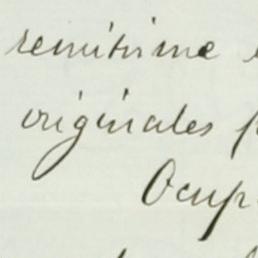 remitirme
originales
Ocup